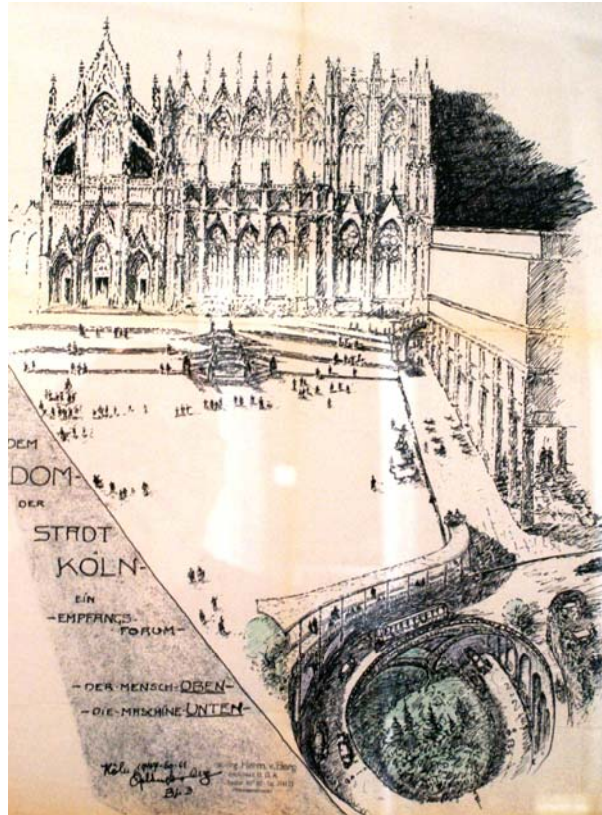 DEM
DOM-
DER
STADT
KÖLN-
EIN
-EMPFANGS-
FORUM-
-DER-MENSCH-OBEN-
-DIE-MASCHINE-UNTEN-
Köln
Herm. v. Berg